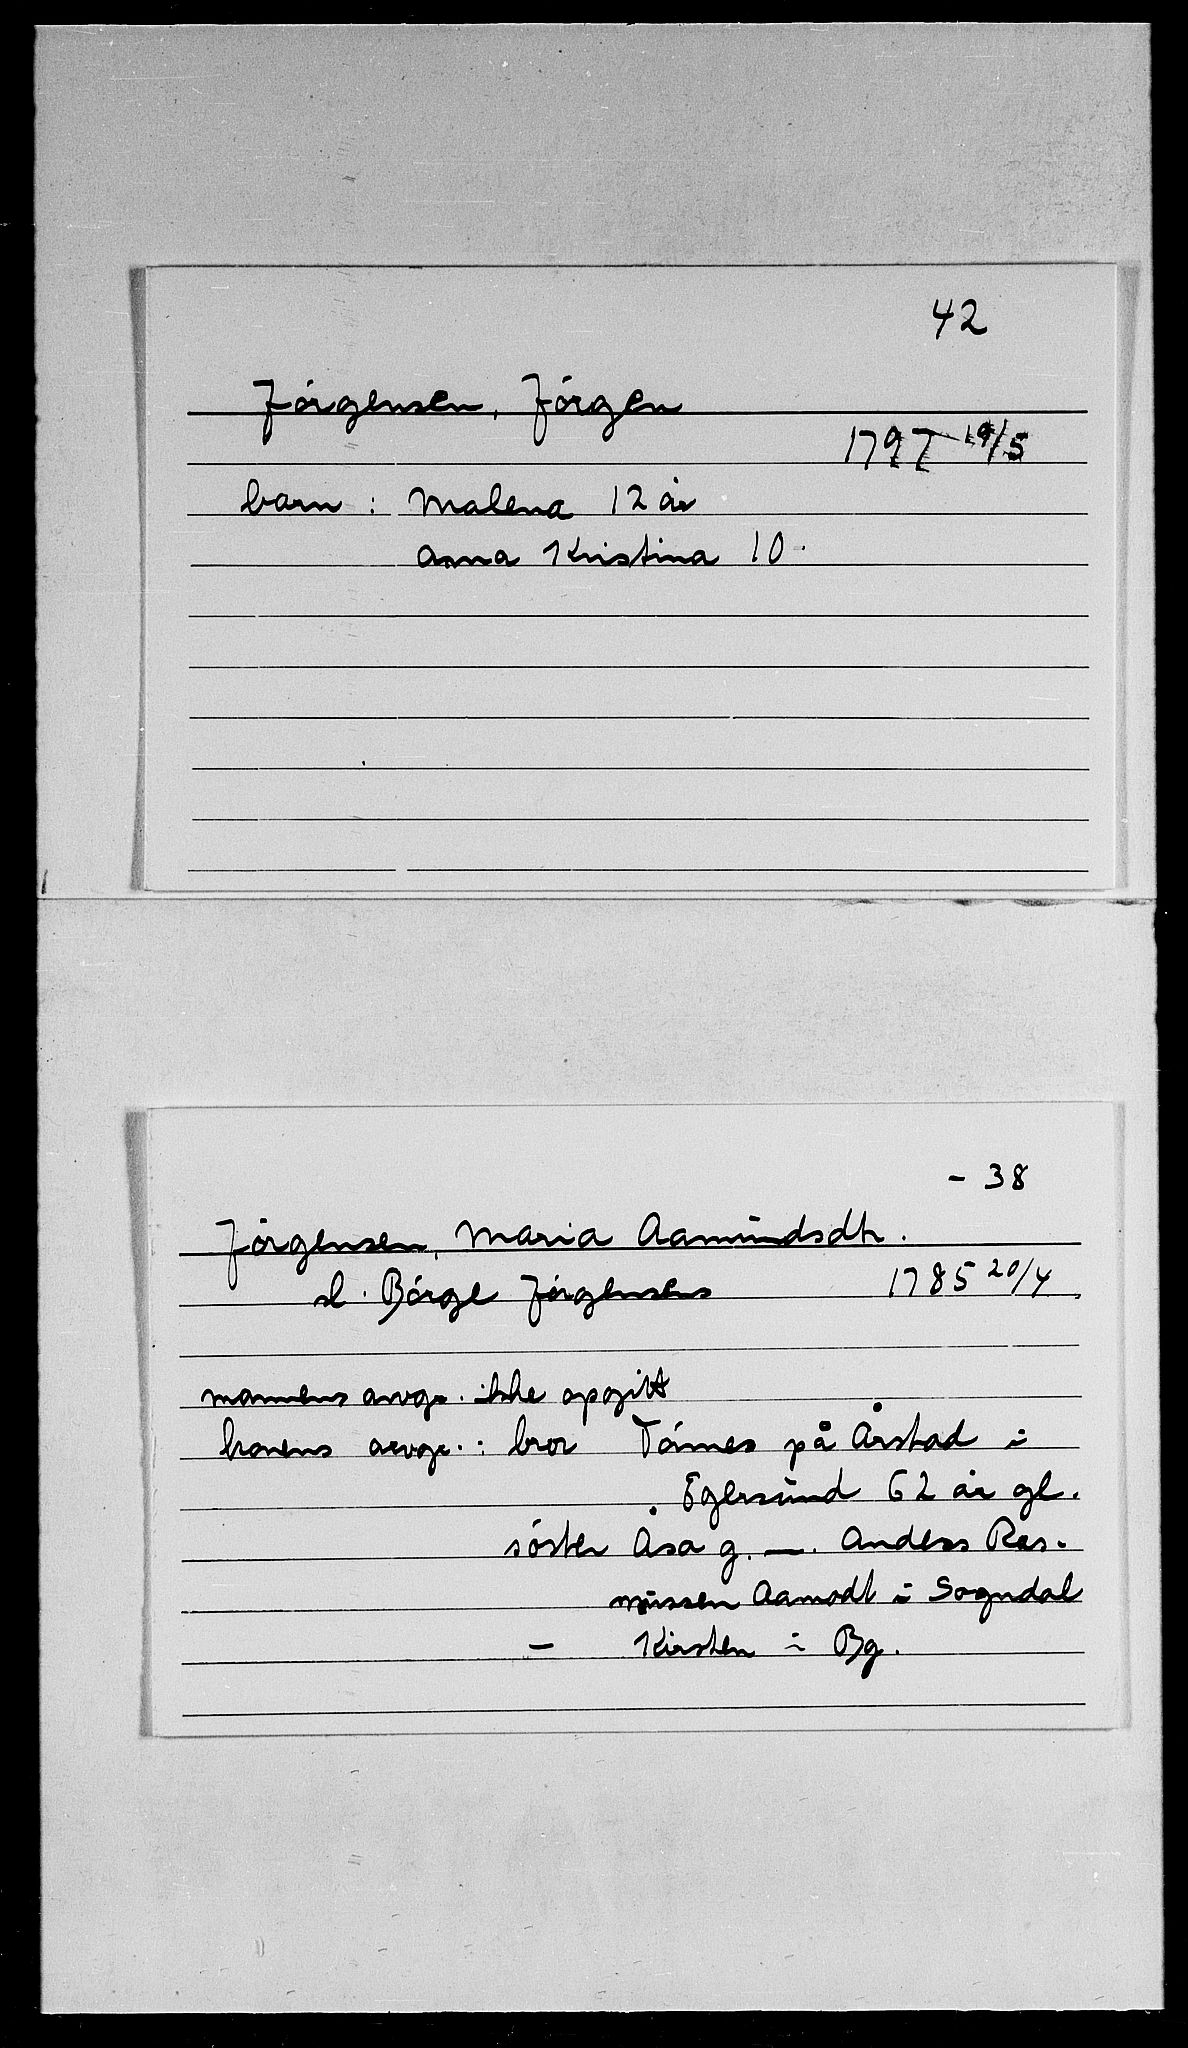 42
Jörgensen, Jörgen
1797 19/5
barn : Malena 12 år
Anna Kristina 10
- 38
Jörgensen, Maria Aamundsdtr.
sl. Börge Jörgensens 1785 20/4
mannens arvgr. ikke opgitt
konens arvgr. : bror Tönnes på Årstad i
Egersund 62 år gl.
söster Åsa g. — . Anders Ras-
mussen Aamodt i Sogndal
— Kirsten i Bg.